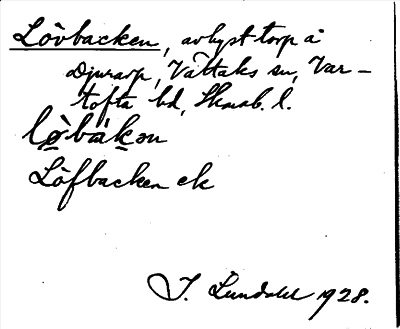 Lövbacken, avhyst torp å
Djurarp, Vättaks sn, Var-
tofta hd, Skarab. l.
lø̀bàkən
Löfbacken ek
I. Lundahl 1928.